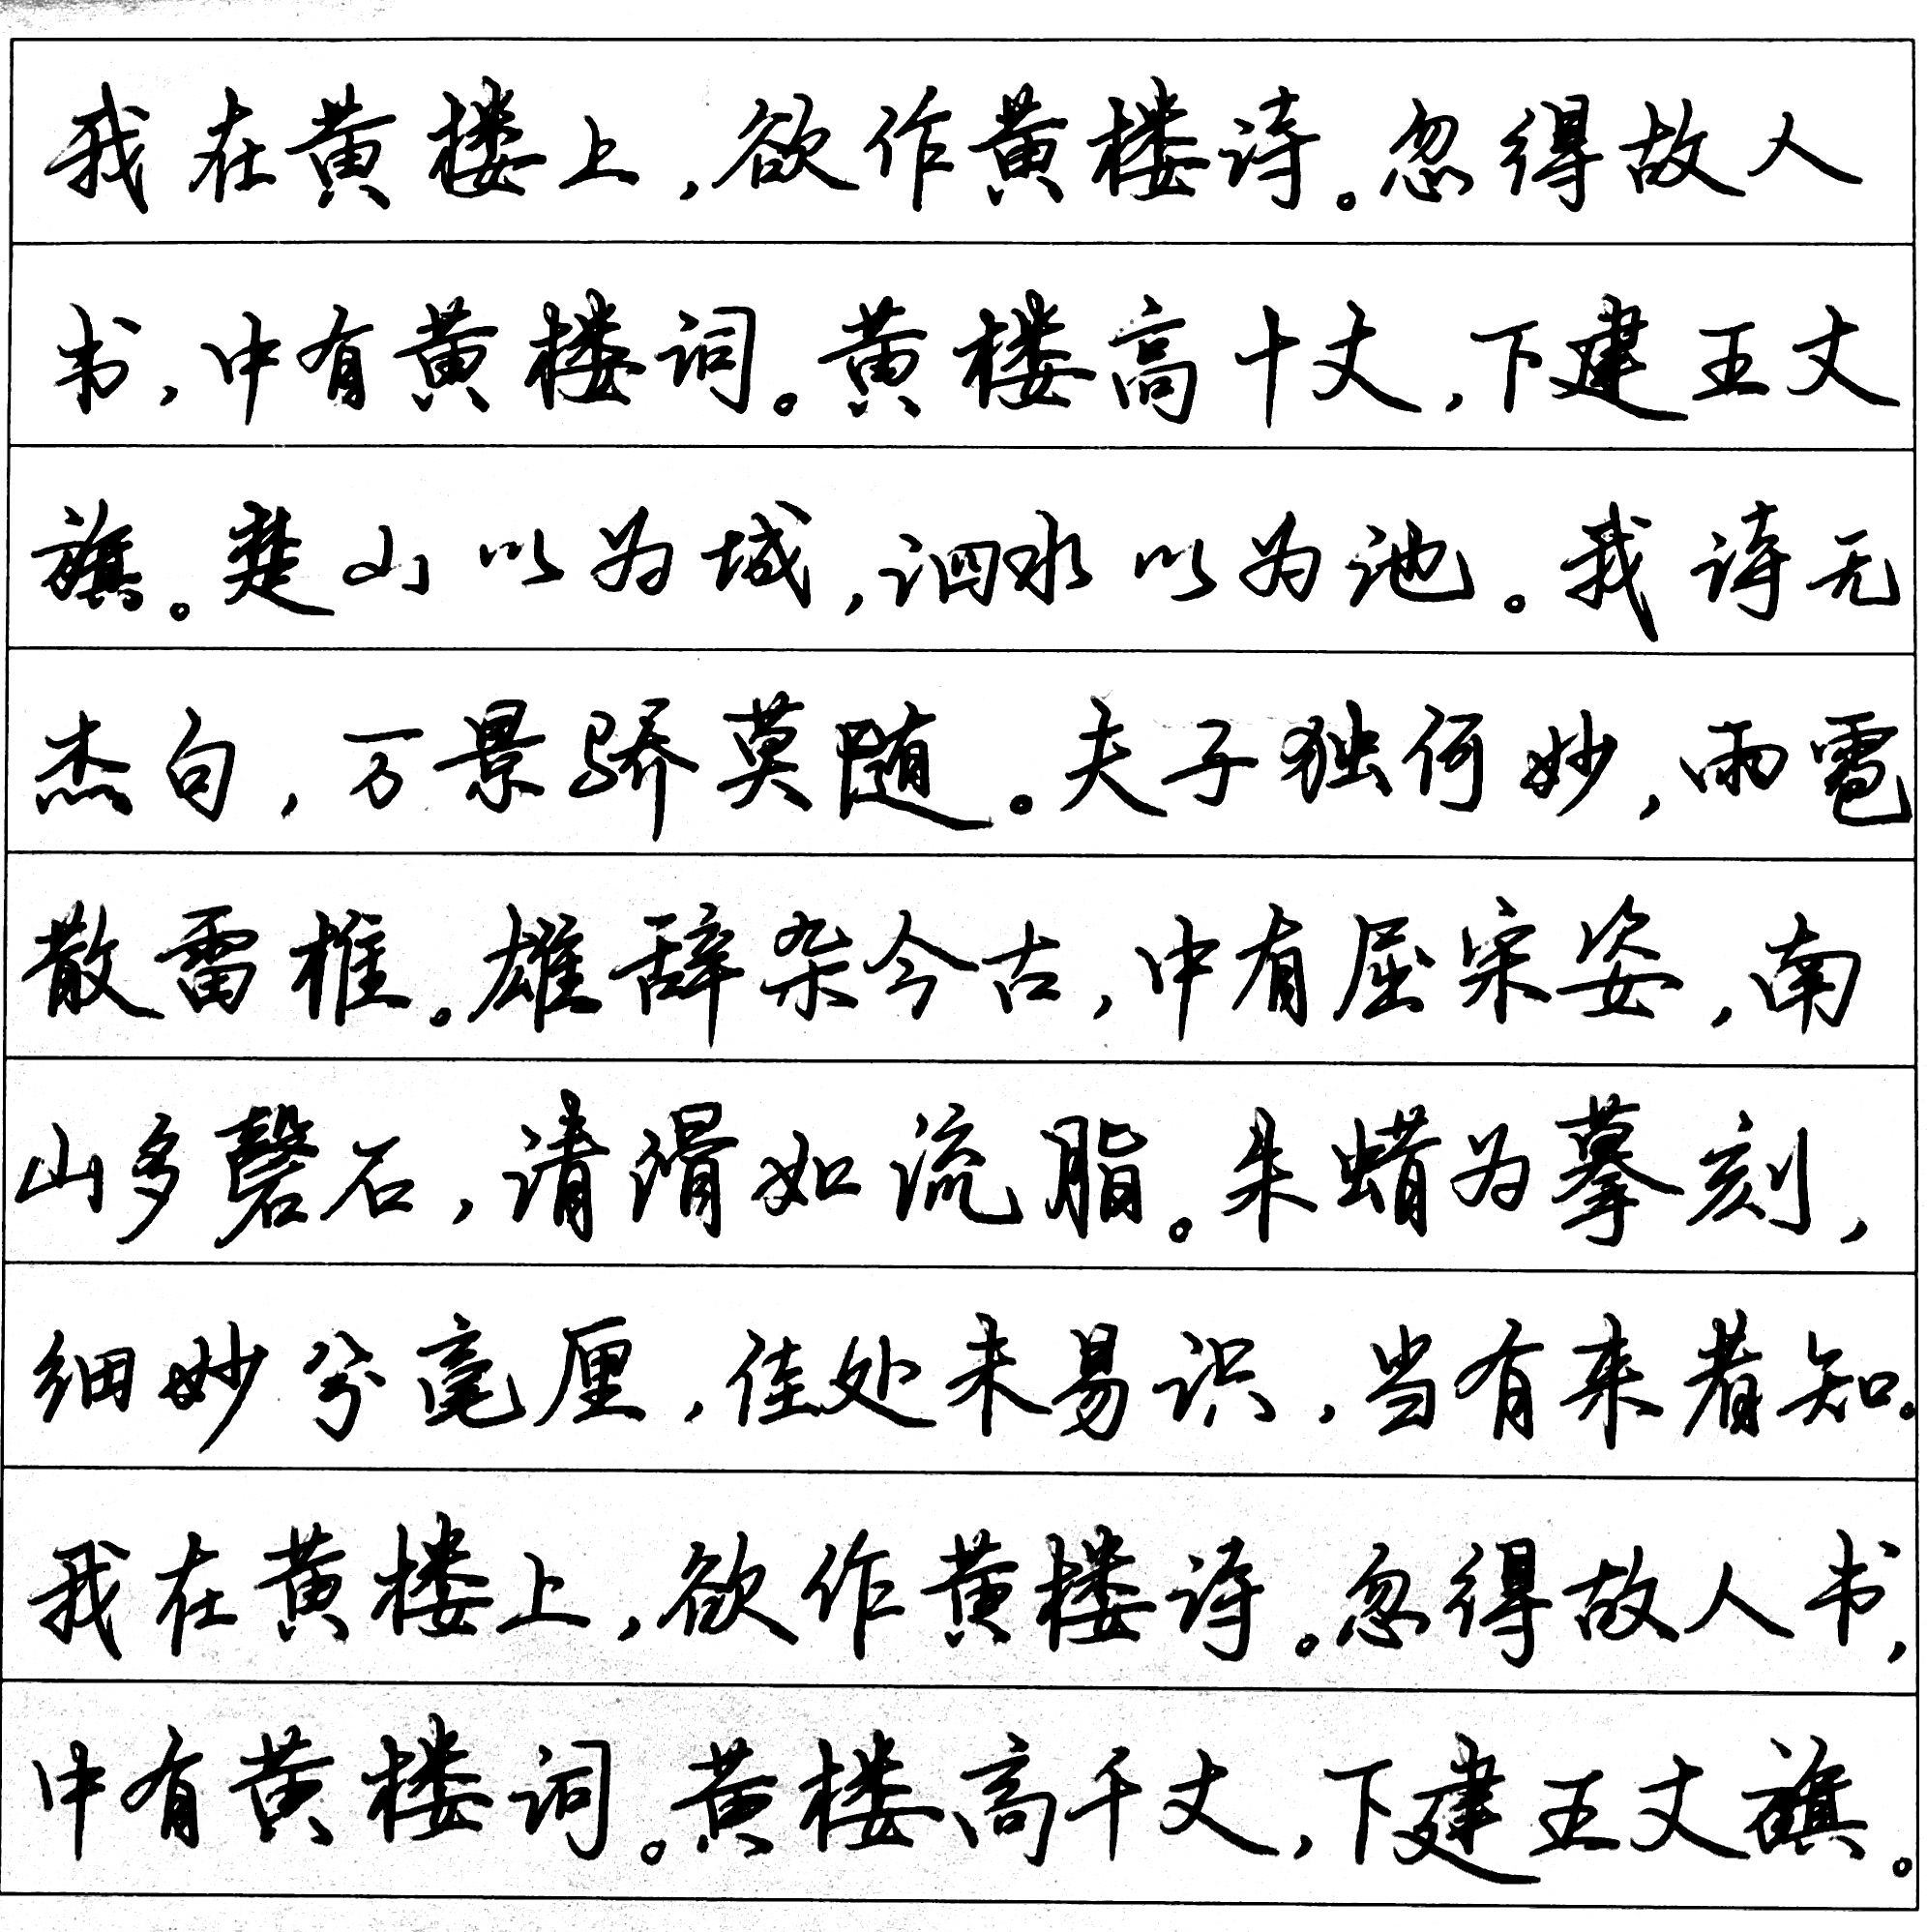 我在黄楼上,欲作黄楼诗。忽得故人
书,中有黄楼词。黄楼高十丈,下建五丈
旗。楚山以为城,泗水以为池。我诗无
杰句,万景骄莫随。夫子独何妙,雨雹
散雷椎。雄辞杂今古,中有屈宋姿,南
山多磬石,清滑如流脂。朱蜡为摹刻,
细妙分毫厘,佳处未易识,当有来者知。
我在黄楼上,欲作黄楼诗。忽得故人书,
中有黄楼词。黄楼高千丈,下建五丈旗。